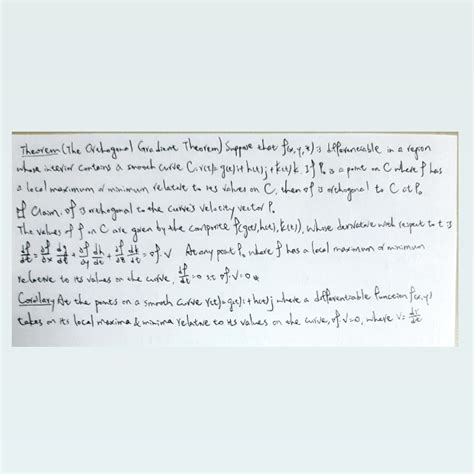 Theorem (The Orthogonal Gradient Theorem) Suppose that f(x,y,z) is differentiable in a region
whose interior contains a smooth curve C: r(t)=g(t)i+h(t)j+k(t)k. If P₀ is a point on C where f has
a local maximum or minimum relative to its values on C, then ∇f is orthogonal to C at P₀
pf Claim, ∇f is orthogonal to the curve's velocity vector P₀
The values of f on C are given by the composite f(g(t),h(t),k(t)), whose derivative with respect to t is
df/dt = ∂f/∂x dg/dt + ∂f/∂y dh/dt + ∂f/∂z dk/dt = ∇f·v At any point P₀ where f has a local maximum or minimum
relative to its values on the curve, df/dt=0 so ∇f·v=0
Corollary At the points on a smooth curve r(t)=g(t)i+h(t)j where a differentiable function f(x,y)
takes on its local maxima & minima relative to its values on the curve, ∇f·v=0, where v=dr/dt